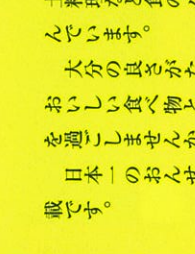 土料理など食の
んでいます。
大分の良さがた
おいしい食べ物と
を過ごしませんか
日本一のおんせ
載です。